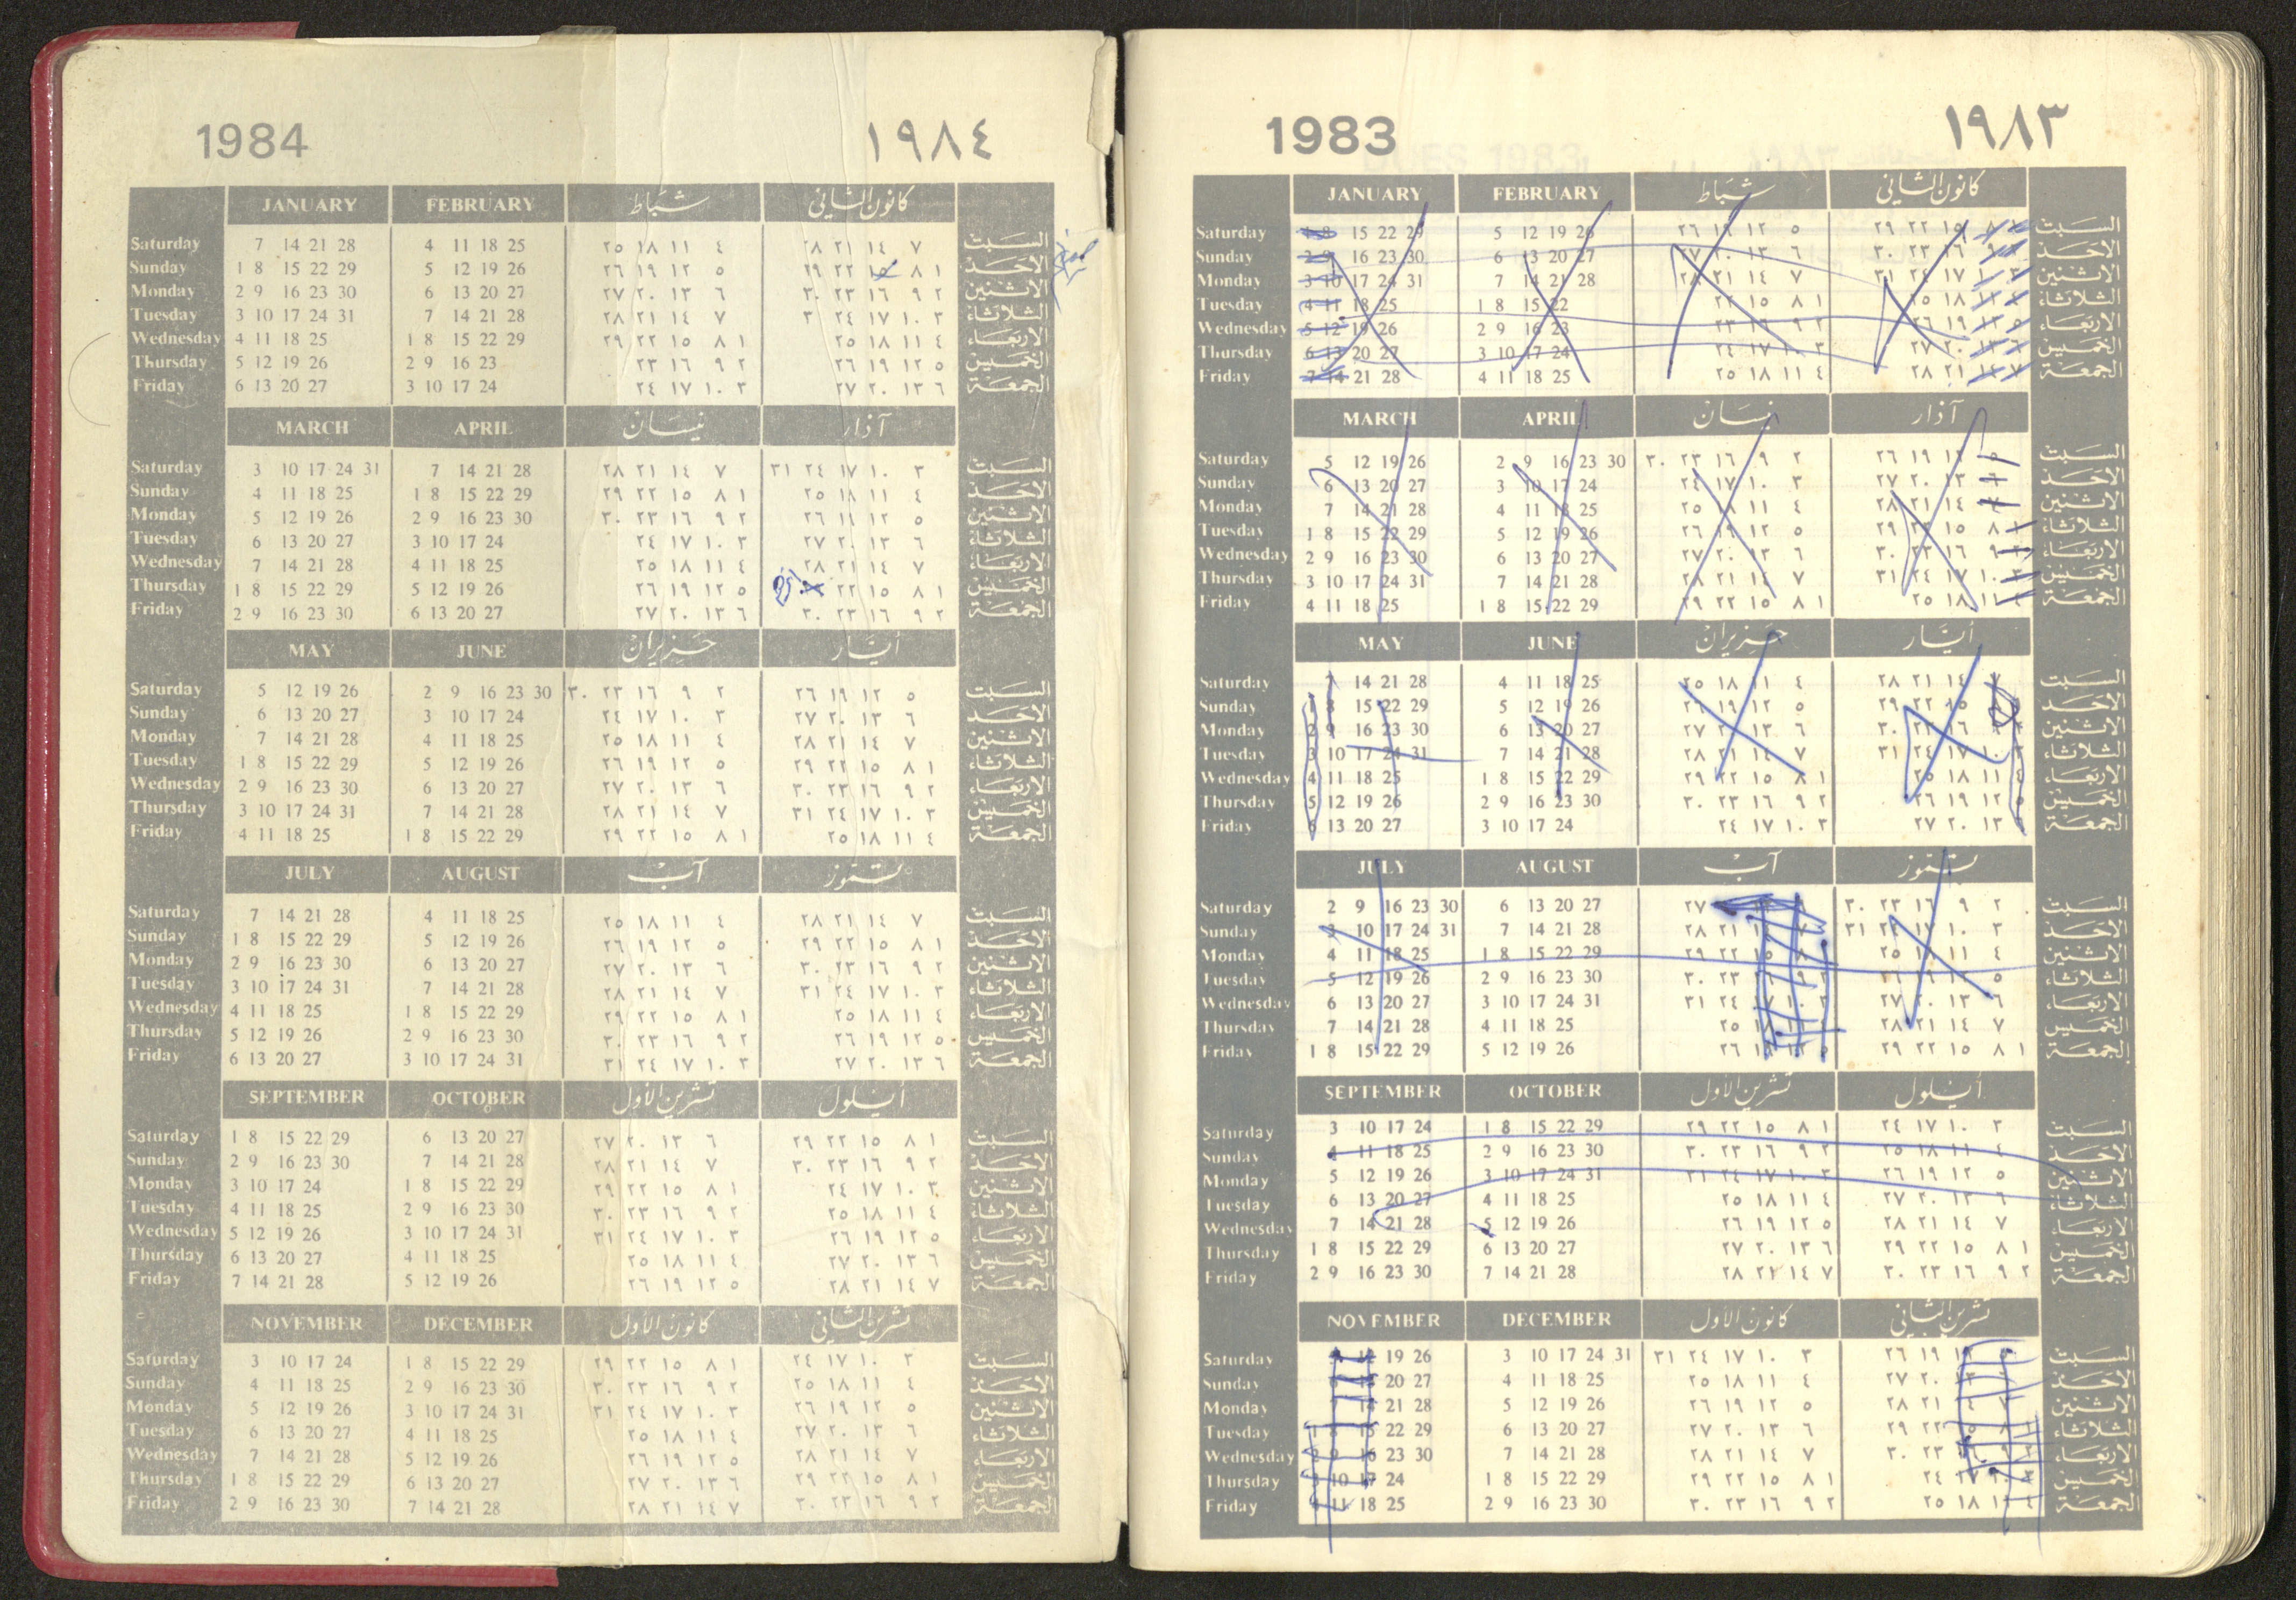 1984 ١٩٨٤
JANUARY FEBRUARY كانون الثاني شباط
Saturday 7 14 21 28 4 11 18 25 السبت ٧ ١٤ ٢١ ٢٨ ٤ ١١ ١٨ ٢٥
Sunday 1 8 15 22 29 5 12 19 26 الاحد ١ ٨ ١٥ ٢٢ ٢٩ ٥ ١٢ ١٩ ٢٦
Monday 2 9 16 23 30 6 13 20 27 الاثنين ٢ ٩ ١٦ ٢٣ ٣٠ ٦ ١٣ ٢٠ ٢٧
Tuesday 3 10 17 24 31 7 14 21 28 الثلاثاء ٣ ١٠ ١٧ ٢٤ ٣١ ٧ ١٤ ٢١ ٢٨
Wednesday 4 11 18 25 1 8 15 22 29 الاربعاء ٤ ١١ ١٨ ٢٥ ١ ٨ ١٥ ٢٢ ٢٩
Thursday 5 12 19 26 2 9 16 23 الخميس ٥ ١٢ ١٩ ٢٦ ٢ ٩ ١٦ ٢٣
Friday 6 13 20 27 3 10 17 24 الجمعة ٦ ١٣ ٢٠ ٢٧ ٣ ١٠ ١٧ ٢٤
MARCH APRIL آذار نيسان
Saturday 3 10 17 24 31 7 14 21 28 السبت ٣ ١٠ ١٧ ٢٤ ٣١ ٧ ١٤ ٢١ ٢٨
Sunday 4 11 18 25 1 8 15 22 29 الاحد ٤ ١١ ١٨ ٢٥ ١ ٨ ١٥ ٢٢ ٢٩
Monday 5 12 19 26 2 9 16 23 30 الاثنين ٥ ١٢ ١٩ ٢٦ ٢ ٩ ١٦ ٢٣ ٣٠
Tuesday 6 13 20 27 3 10 17 24 الثلاثاء ٦ ١٣ ٢٠ ٢٧ ٣ ١٠ ١٧ ٢٤
Wednesday 7 14 21 28 4 11 18 25 الاربعاء ٧ ١٤ ٢١ ٢٨ ٤ ١١ ١٨ ٢٥
Thursday 1 8 15 22 29 5 12 19 26 الخميس ١ ٨ ١٥ ٢٢ ٥ ١٢ ١٩ ٢٦
Friday 2 9 16 23 30 6 13 20 27 الجمعة ٢ ٩ ١٦ ٢٣ ٣٠ ٦ ١٣ ٢٠ ٢٧
MAY JUNE أيار حزيران
Saturday 5 12 19 26 2 9 16 23 30 السبت ٥ ١٢ ١٩ ٢٦ ٢ ٩ ١٦ ٢٣ ٣٠
Sunday 6 13 20 27 3 10 17 24 الاحد ٦ ١٣ ٢٠ ٢٧ ٣ ١٠ ١٧ ٢٤
Monday 7 14 21 28 4 11 18 25 الاثنين ٧ ١٤ ٢١ ٢٨ ٤ ١١ ١٨ ٢٥
Tuesday 1 8 15 22 29 5 12 19 26 الثلاثاء ١ ٨ ١٥ ٢٢ ٢٩ ٥ ١٢ ١٩ ٢٦
Wednesday 2 9 16 23 30 6 13 20 27 الاربعاء ٢ ٩ ١٦ ٢٣ ٣٠ ٦ ١٣ ٢٠ ٢٧
Thursday 3 10 17 24 31 7 14 21 28 الخميس ٣ ١٠ ١٧ ٢٤ ٣١ ٧ ١٤ ٢١ ٢٨
Friday 4 11 18 25 1 8 15 22 29 الجمعة ٤ ١١ ١٨ ٢٥ ١ ٨ ١٥ ٢٢ ٢٩
JULY AUGUST تموز آب
Saturday 7 14 21 28 4 11 18 25 السبت ٧ ١٤ ٢١ ٢٨ ٤ ١١ ١٨ ٢٥
Sunday 1 8 15 22 29 5 12 19 26 الاحد ١ ٨ ١٥ ٢٢ ٢٩ ٥ ١٢ ١٩ ٢٦
Monday 2 9 16 23 30 6 13 20 27 الاثنين ٢ ٩ ١٦ ٢٣ ٣٠ ٦ ١٣ ٢٠ ٢٧
Tuesday 3 10 17 24 31 7 14 21 28 الثلاثاء ٣ ١٠ ١٧ ٢٤ ٣١ ٧ ١٤ ٢١ ٢٨
Wednesday 4 11 18 25 1 8 15 22 29 الاربعاء ٤ ١١ ١٨ ٢٥ ١ ٨ ١٥ ٢٢ ٢٩
Thursday 5 12 19 26 2 9 16 23 30 الخميس ٥ ١٢ ١٩ ٢٦ ٢ ٩ ١٦ ٢٣ ٣٠
Friday 6 13 20 27 3 10 17 24 31 الجمعة ٦ ١٣ ٢٠ ٢٧ ٣ ١٠ ١٧ ٢٤ ٣١
SEPTEMBER OCTOBER أيلول تشرين الأول
Saturday 1 8 15 22 29 6 13 20 27 السبت ١ ٨ ١٥ ٢٢ ٢٩ ٦ ١٣ ٢٠ ٢٧
Sunday 2 9 16 23 30 7 14 21 28 الاحد ٢ ٩ ١٦ ٢٣ ٣٠ ٧ ١٤ ٢١ ٢٨
Monday 3 10 17 24 1 8 15 22 29 الاثنين ٣ ١٠ ١٧ ٢٤ ١ ٨ ١٥ ٢٢ ٢٩
Tuesday 4 11 18 25 2 9 16 23 30 الثلاثاء ٤ ١١ ١٨ ٢٥ ٢ ٩ ١٦ ٢٣ ٣٠
Wednesday 5 12 19 26 3 10 17 24 31 الاربعاء ٥ ١٢ ١٩ ٢٦ ٣ ١٠ ١٧ ٢٤ ٣١
Thursday 6 13 20 27 4 11 18 25 الخميس ٦ ١٣ ٢٠ ٢٧ ٤ ١١ ١٨ ٢٥
Friday 7 14 21 28 5 12 19 26 الجمعة ٧ ١٤ ٢١ ٢٨ ٥ ١٢ ١٩ ٢٦
NOVEMBER DECEMBER تشرين الثاني كانون الأول
Saturday 3 10 17 24 1 8 15 22 29 السبت ٣ ١٠ ١٧ ٢٤ ١ ٨ ١٥ ٢٢ ٢٩
Sunday 4 11 18 25 2 9 16 23 30 الاحد ٤ ١١ ١٨ ٢٥ ٢ ٩ ١٦ ٢٣ ٣٠
Monday 5 12 19 26 3 10 17 24 31 الاثنين ٥ ١٢ ١٩ ٢٦ ٣ ١٠ ١٧ ٢٤ ٣١
Tuesday 6 13 20 27 4 11 18 25 الثلاثاء ٦ ١٣ ٢٠ ٢٧ ٤ ١١ ١٨ ٢٥
Wednesday 7 14 21 28 5 12 19 26 الاربعاء ٧ ١٤ ٢١ ٢٨ ٥ ١٢ ١٩ ٢٦
Thursday 1 8 15 22 29 6 13 20 27 الخميس ١ ٨ ١٥ ٢٢ ٢٩ ٦ ١٣ ٢٠ ٢٧
Friday 2 9 16 23 30 7 14 21 28 الجمعة ٢ ٩ ١٦ ٢٣ ٣٠ ٧ ١٤ ٢١ ٢٨
1983 ١٩٨٣
JANUARY FEBRUARY كانون الثاني شباط
Saturday 1 8 15 22 29 5 12 19 26 السبت ١ ٨ ١٥ ٢٢ ٢٩ ٥ ١٢ ١٩ ٢٦
Sunday 2 9 16 23 30 6 13 20 27 الاحد ٢ ٩ ١٦ ٢٣ ٣٠ ٦ ١٣ ٢٠ ٢٧
Monday 3 10 17 24 31 7 14 21 28 الاثنين ٣ ١٠ ١٧ ٢٤ ٣١ ٧ ١٤ ٢١ ٢٨
Tuesday 4 11 18 25 1 8 15 22 الثلاثاء ٤ ١١ ١٨ ٢٥ ١ ٨ ١٥ ٢٢
Wednesday 5 12 19 26 2 9 16 23 الاربعاء ٥ ١٢ ١٩ ٢٦ ٢ ٩ ١٦ ٢٣
Thursday 6 13 20 27 3 10 17 24 الخميس ٦ ١٣ ٢٠ ٢٧ ٣ ١٠ ١٧ ٢٤
Friday 7 14 21 28 4 11 18 25 الجمعة ٧ ١٤ ٢١ ٢٨ ٤ ١١ ١٨ ٢٥
MARCH APRIL آذار نيسان
Saturday 5 12 19 26 2 9 16 23 30 السبت ٥ ١٢ ١٩ ٢٦ ٢ ٩ ١٦ ٢٣ ٣٠
Sunday 6 13 20 27 3 10 17 24 الاحد ٦ ١٣ ٢٠ ٢٧ ٣ ١٠ ١٧ ٢٤
Monday 7 14 21 28 4 11 18 25 الاثنين ٧ ١٤ ٢١ ٢٨ ٤ ١١ ١٨ ٢٥
Tuesday 1 8 15 22 29 5 12 19 26 الثلاثاء ١ ٨ ١٥ ٢٢ ٢٩ ٥ ١٢ ١٩ ٢٦
Wednesday 2 9 16 23 30 6 13 20 27 الاربعاء ٢ ٩ ١٦ ٢٣ ٣٠ ٦ ١٣ ٢٠ ٢٧
Thursday 3 10 17 24 31 7 14 21 28 الخميس ٣ ١٠ ١٧ ٢٤ ٣١ ٧ ١٤ ٢١ ٢٨
Friday 4 11 18 25 1 8 15 22 29 الجمعة ٤ ١١ ١٨ ٢٥ ١ ٨ ١٥ ٢٢ ٢٩
MAY JUNE أيار حزيران
Saturday 7 14 21 28 4 11 18 25 السبت ٧ ١٤ ٢١ ٢٨ ٤ ١١ ١٨ ٢٥
Sunday 1 8 15 22 29 5 12 19 26 الاحد ١٥ ٢٢ ٢٩ ٥ ١٢ ١٩ ٢٦
Monday 2 9 16 23 30 6 13 20 27 الاثنين ٢ ٩ ١٦ ٢٣ ٣٠ ٦ ١٣ ٢٠ ٢٧
Tuesday 3 10 17 24 31 7 14 21 28 الثلاثاء ٣ ١٠ ١٧ ٢٤ ٣١ ٧ ١٤ ٢١ ٢٨
Wednesday 4 11 18 25 1 8 15 22 29 الاربعاء ٤ ١١ ١٨ ٢٥ ١ ٨ ١٥ ٢٢ ٢٩
Thursday 5 12 19 26 2 9 16 23 30 الخميس ٥ ١٢ ١٩ ٢٦ ٢ ٩ ١٦ ٢٣ ٣٠
Friday 6 13 20 27 3 10 17 24 الجمعة ٦ ١٣ ٢٠ ٢٧ ٣ ١٠ ١٧ ٢٤
JULY AUGUST تموز آب
Saturday 2 9 16 23 30 6 13 20 27 السبت ٢ ٩ ١٦ ٢٣ ٣٠ ٢٧
Sunday 3 10 17 24 31 7 14 21 28 الاحد ٣ ١٠ ١٧ ٢٤ ٣١ ٧ ٢١ ٢٨
Monday 4 11 18 25 1 8 15 22 29 الاثنين ٤ ١١ ١٨ ٢٥ ٨ ١٥ ٢٢ ٢٩
Tuesday 5 12 19 26 2 9 16 23 30 الثلاثاء ٥ ١٢ ١٩ ٢٦ ٢ ٩ ١٦ ٢٣ ٣٠
Wednesday 6 13 20 27 3 10 17 24 31 الاربعاء ٦ ١٣ ٢٠ ٢٧ ٣ ١٠ ١٧ ٢٤ ٣١
Thursday 7 14 21 28 4 11 18 25 الخميس ٧ ١٤ ٢١ ٢٨ ٤ ١١ ١٨ ٢٥
Friday 1 8 15 22 29 5 12 19 26 الجمعة ١ ٨ ١٥ ٢٢ ٢٩ ٥ ١٢ ١٩ ٢٦
SEPTEMBER OCTOBER أيلول تشرين الأول
Saturday 3 10 17 24 1 8 15 22 29 السبت ٣ ١٠ ١٧ ٢٤ ١ ٨ ١٥ ٢٢ ٢٩
Sunday 4 11 18 25 2 9 16 23 30 الاحد ٤ ١١ ١٨ ٢٥ ٢ ٩ ١٦ ٢٣ ٣٠
Monday 5 12 19 26 3 10 17 24 31 الاثنين ٥ ١٢ ١٩ ٢٦ ٣ ١٠ ١٧ ٢٤ ٣١
Tuesday 6 13 20 27 4 11 18 25 الثلاثاء ٦ ١٣ ٢٠ ٢٧ ٤ ١١ ١٨ ٢٥
Wednesday 7 14 21 28 5 12 19 26 الاربعاء ٧ ١٤ ٢١ ٢٨ ٥ ١٢ ١٩ ٢٦
Thursday 1 8 15 22 29 6 13 20 27 الخميس ١ ٨ ١٥ ٢٢ ٢٩ ٦ ١٣ ٢٠ ٢٧
Friday 2 9 16 23 30 7 14 21 28 الجمعة ٢ ٩ ١٦ ٢٣ ٣٠ ٧ ١٤ ٢١ ٢٨
NOVEMBER DECEMBER تشرين الثاني كانون الأول
Saturday 19 26 3 10 17 24 31 السبت ١٩ ٢٦ ٣ ١٠ ١٧ ٢٤ ٣١
Sunday 20 27 4 11 18 25 الاحد ٢٠ ٢٧ ٤ ١١ ١٨ ٢٥
Monday 21 28 5 12 19 26 الاثنين ٢١ ٢٨ ٥ ١٢ ١٩ ٢٦
Tuesday 22 29 6 13 20 27 الثلاثاء ٢٢ ٢٩ ٦ ١٣ ٢٠ ٢٧
Wednesday 9 16 23 30 7 14 21 28 الاربعاء ٢٣ ٣٠ ٧ ١٤ ٢١ ٢٨
Thursday 10 17 24 1 8 15 22 29 الخميس ١٧ ٢٤ ١ ٨ ١٥ ٢٢ ٢٩
Friday 11 18 25 2 9 16 23 30 الجمعة ٤ ١١ ١٨ ٢٥ ٢ ٩ ١٦ ٢٣ ٣٠